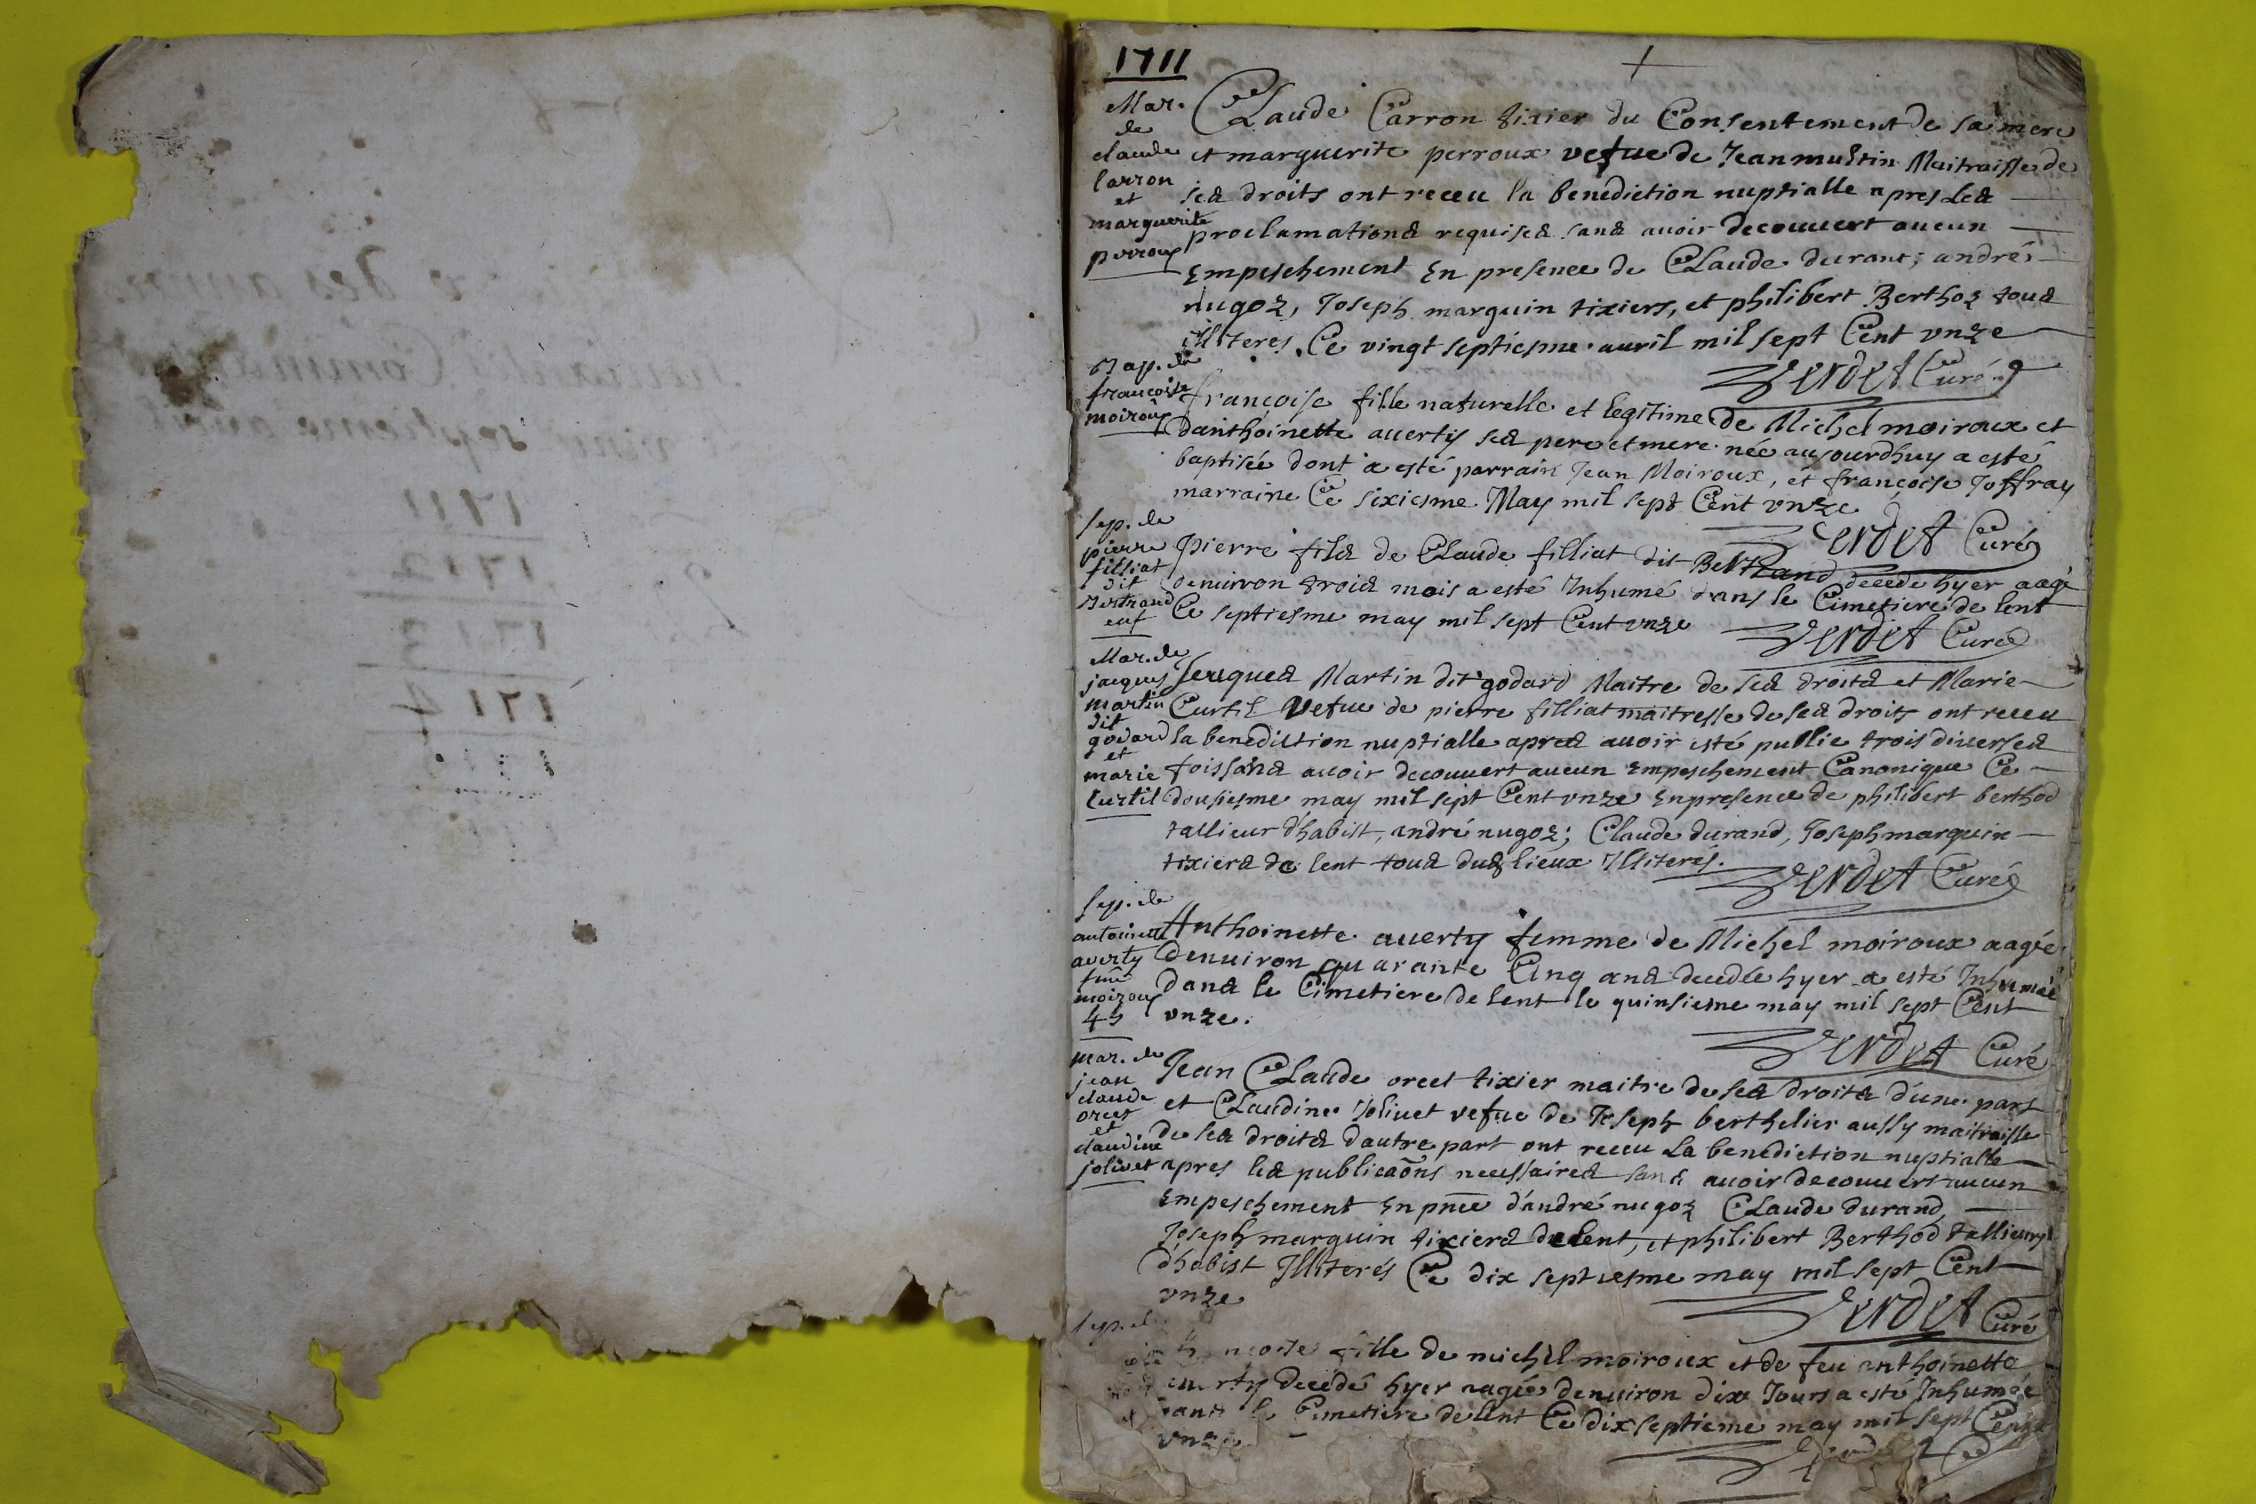 1711
Mar.
de
claude
Carron
et
marguerite
perroux
Claude Carron tixier du Consentement de sa mere
et marguerite perroux vefue de Jean multin Maitraisse de
ses droits ont receu la benediction nuptialle apres les
proclamations requises sans auoir decouuert aucun
Empeschement En presence de Claude durant, andré
nugoz, Joseph marguin tixiers, et philibert Berthoz tous
illiteres, Ce vingt septiesme auril mil sept Cent vnze
Verdet Curé
Bap. de
francoise
moiroux
françoise fille naturelle et legitime de Michel moiroux et
danthoinette auerty ses pere et mere née aujourdhuy a esté
baptisée dont a esté parrain Jean Moiroux, et françoise Joffray
marraine Ce sixiesme May mil sept Cent vnze
Verdet Curé
sep. de
pierre
filliat
dit
Bertrand
enf
pierre fils de Claude filliat dit Bertrand decede hyer aagé
denuiron trois mois a esté Inhumé dans le Cimetiere de lent
Ce septiesme may mil sept Cent vnze
Verdet Curé
Mar. de
jacques
martin
dit
godard
et
marie
Curtil
Jacques Martin dit godard Maitre de ses droits et Marie
Curtil Vefue de pierre filliat maitresse de ses droits ont receu
la benediction nuptialle apres auoir esté publie trois diuerses
fois sans auoir decouuert aucun Empeschement Canonique Ce
dousiesme may mil sept Cent vnze En presence de philibert berthod
tallieur dhabist, andré nugoz; Claude durand, Joseph marguin
tixiers de lent tous dud lieux Illiterés.
Verdet Curé
sep. de
antoinette
averty
fme
moiroux
45
Anthoinette auerty femme de Michel moiroux aagée
denuiron quarante Cinq ans decedée hyer a esté Inhumée
dans le Cimetiere de lent le quinsiesme may mil sept Cent
vnze.
Verdet Curé
mar. de
jean
claude
orcet
et
claudine
jolivet
Jean Claude orcet tixier maitre de ses droits d'une part
et Claudine Joliuet vefue de Joseph berthelier aussy maitraisse
de ses droits dautre part ont receu La benediction nuptialle
apres les publicaõns necessaires sans auoir decouuert aucun
Empeschement En pnce d'andré nugoz Claude durand,
Joseph marguin tixiers de lent, et philibert Berthod tallieurs
d'habist Illiterés Ce dix septiesme may mil sept Cent
vnze
Verdet Curé
sep. de
fille de michel moiroux et de feu anthoinette
auerty decedé hyer aagée denuiron dix Jours a esté Inhumée
dans le Cimetiere de lent Ce dix septieme may mil sept Cent
vnze